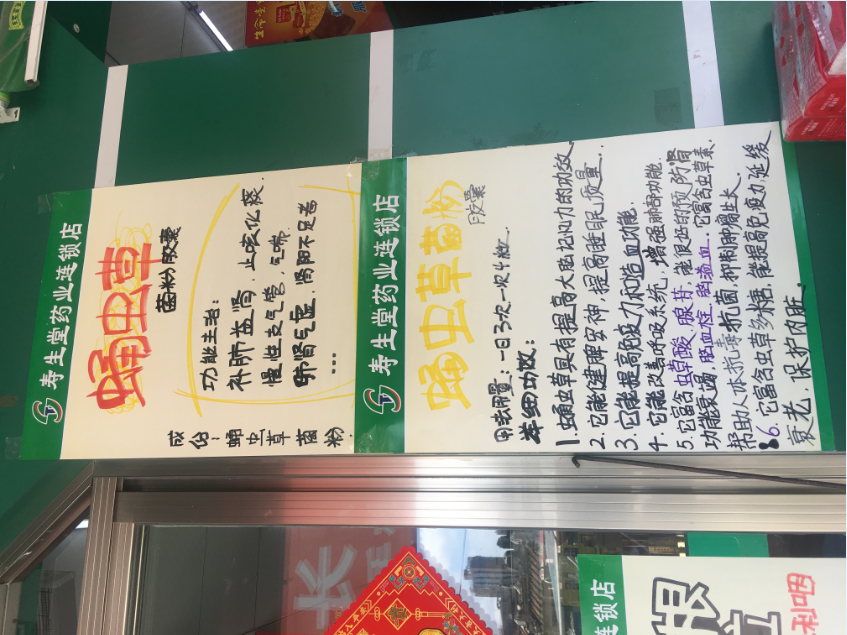 寿生堂药业连锁店
蛹虫草
菌粉胶囊
功能主治:
补肺益肾,止咳化痰.
慢性支气管,气喘
肺肾气虚,肾阴不足者
……
成份:蛹虫草菌粉.
寿生堂药业连锁店
蛹虫草菌粉
胶囊
用法用量:一日3次一次4粒.
详细功效:
1.蛹虫草具有提高大脑记忆力的功效
2.它能健脾安神,提高睡眠质量.
3.它能提高免疫力和造血功能.
4.它能改善呼吸系统,增强肺部功能.
5.它富含虫草酸,腺苷,能很好的预防肾
功能衰竭,脑血栓,脑溢血.它富含虫草素.
帮助人体抗毒抗菌,抑制肿瘤生长.
6.它富含虫草多糖,能提高免疫力,延缓
衰老,保护内脏.
连锁店
长